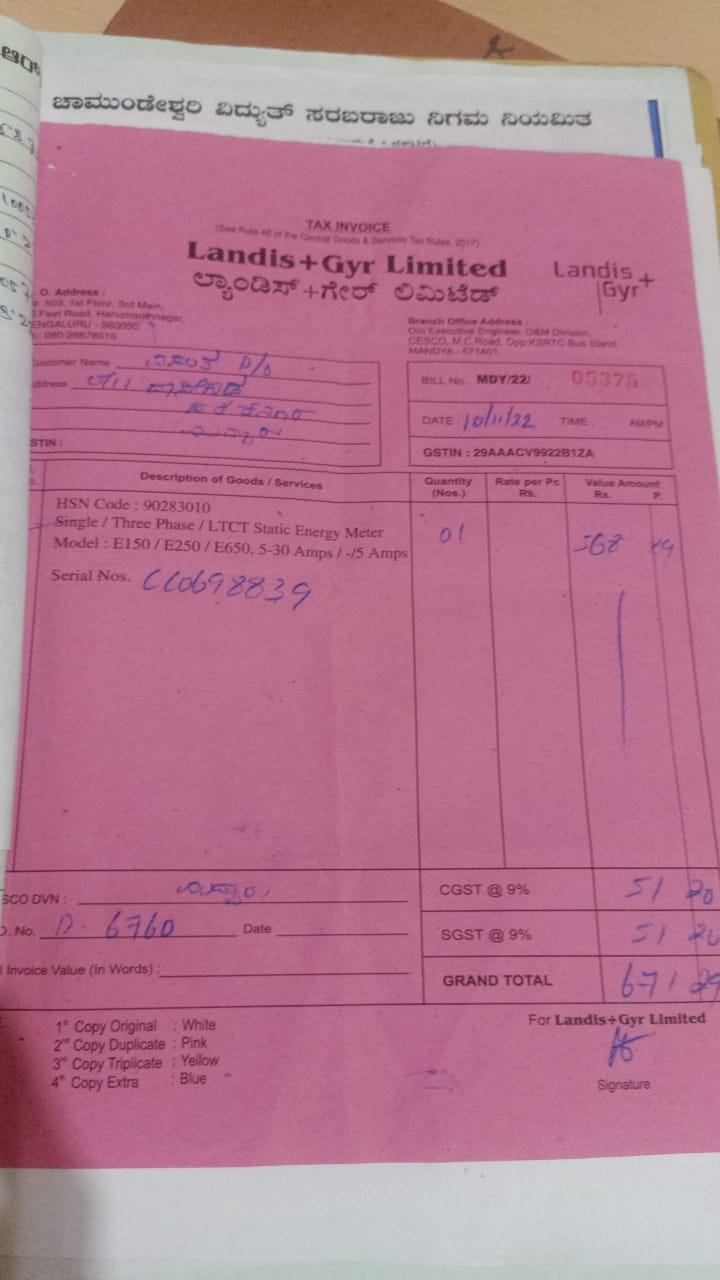 ಚಾಮುಂಡೇಶ್ವರಿ ವಿದ್ಯುತ್ ಸರಬರಾಜು ನಿಗಮ ನಿಯಮಿತ
TAX INVOICE
(See Rule 46 of the Central Goods & Services Tax Rules, 2017)
Landis+Gyr Limited
ಲ್ಯಾಂಡಿಸ್+ಗೇರ್ ಲಿಮಿಟೆಡ್
Landis+
Gyr
O. Address :
503, 1st Floor, 3rd Main,
Feet Road, Hanumanthnagar,
ENGALURU - 560050
080-26678515
Branch Office Address :
O/o Executive Engineer, O&M Division,
CESCO, M.C.Road, Opp:KSRTC Bus Stand,
MANDYA - 571401.
ustomer Name D/o
ddress
STIN :
BILL No. MDY/22/ 05375
DATE : 10/11/22 TIME : AM/PM
GSTIN : 29AAACV9922B1ZA
Description of Goods / Services
Quantity (Nos.)
Rate per Pc Rs.
Value Amount Rs. P.
HSN Code : 90283010
Single / Three Phase / LTCT Static Energy Meter
Model : E150 / E250 / E650, 5-30 Amps / -/5 Amps
01
568
Serial Nos. CC0698839
SCO DVN :
CGST @ 9% 51 20
O. No. D. 6760 Date
SGST @ 9% 51 20
Invoice Value (In Words) :
GRAND TOTAL 671 29
1st Copy Original : White
2nd Copy Duplicate : Pink
3rd Copy Triplicate : Yellow
4th Copy Extra : Blue
For Landis+Gyr Limited
Signature